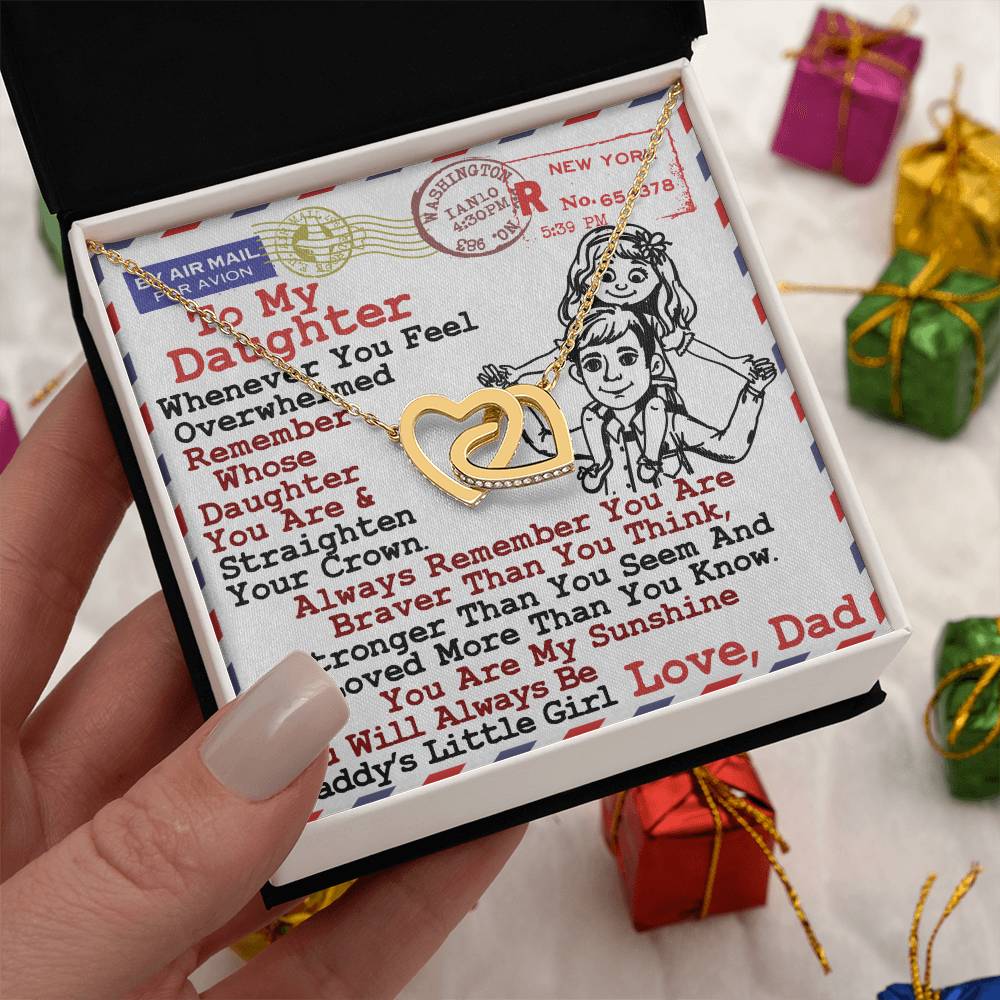 WASHINGTON
IAN10
4:30PM
NO. 983
NEW YORK
R No. 65 378
5:39 PM
BY AIR MAIL
PAR AVION
To My
Daughter
Whenever You Feel
Overwhelmed
Remember
Whose
Daughter
You Are &
Straighten
Your Crown.
Always Remember You Are
Braver Than You Think,
tronger Than You Seem And
oved More Than You Know.
You Are My Sunshine
Will Always Be
addy's Little Girl
Love, Dad